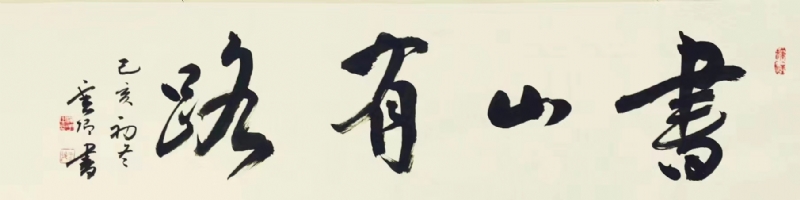 書山有路
己亥初冬
雲卿書